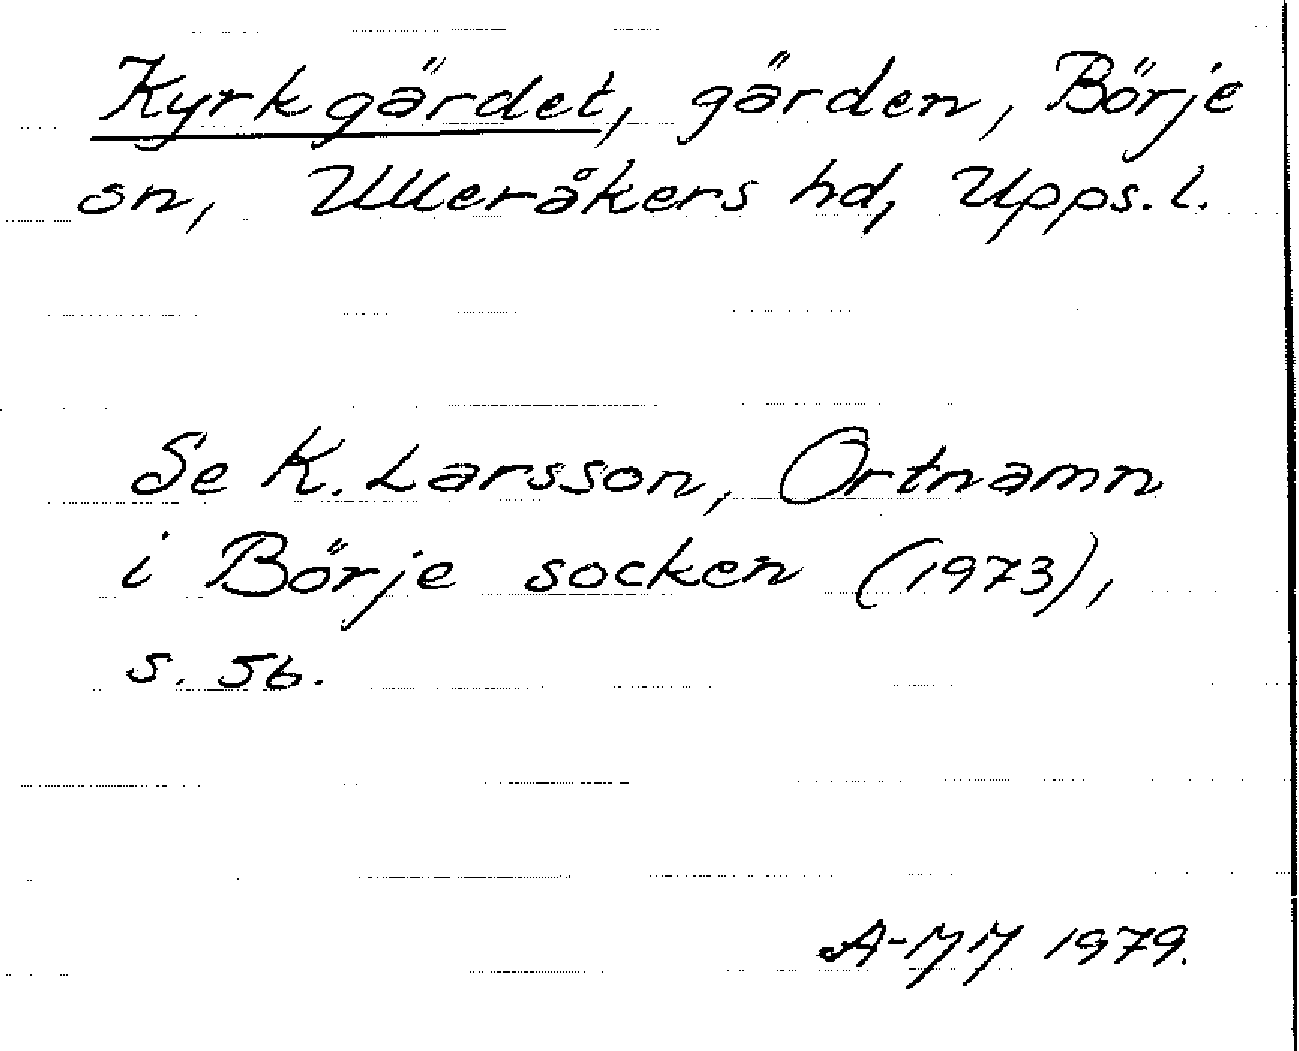 Kyrkgärdet, gärden, Börje
sn, Ulleråkers hd, Upps. l.
Se K. Larsson, Ortnamn
i Börje socken (1973),
s. 56.
1979.